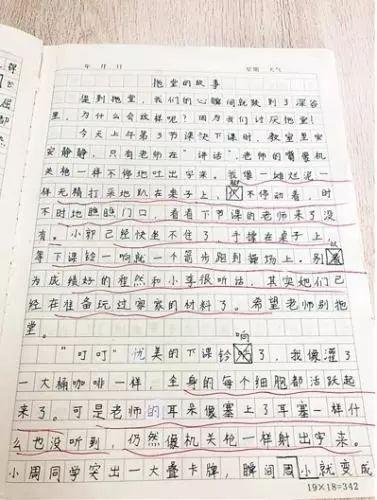 年 月 日 星期 天气
拖堂的故事
提到拖堂，我们的心瞬间就跌到了深谷
里，为什么会这样呢？因为我们讨厌拖堂！
今天上午第3节课快下课时，教室里安
安静静，只有老师在“讲话”，老师的嘴像机
关枪一样不停地吐出字来。我像一摊烂泥一
样无精打采地趴在桌子上，不停动着，时
不时地瞧瞧门口，看看下节课的老师来了没
有。小郭已经快坐不住了，手撑在桌子上，
等下课铃一响就一个箭步跑到操场上。别
为成绩好的崔然和小李很听话，其实她们已
经在准备玩过家家的材料了。希望老师别拖
堂。
响
“叮叮”优美的下课铃了，我像灌了
一大桶咖啡一样，全身的每个细胞都活跃起
来了。可是老师的耳朵像塞上了耳塞一样什
么也没听到，仍然像机关枪一样射出字来。
小周同学突出一大叠卡牌，瞬间周小就变成
19×18=342